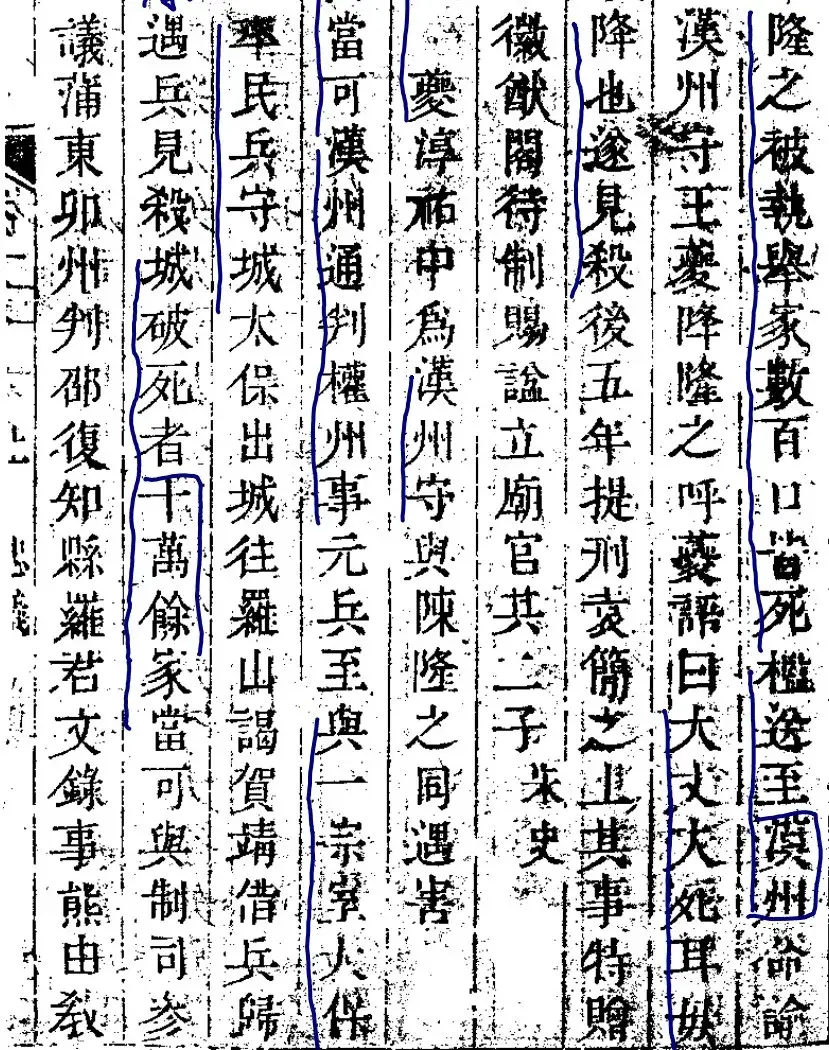 隆之被執舉家數百口皆死檻送至漢州命諭
漢州守王夔降隆之呼夔語曰大丈夫死耳毋
降也遂見殺後五年提刑袁簡之上其事特贈
徽猷閣待制賜諡立廟官其二子 宋史
夔淳祐中爲漢州守與陳隆之同遇害
當可漢州通判權州事元兵至與一宗室大保
率民兵守城太保出城往羅山謁賀靖借兵歸
遇兵見殺城破死者十萬餘家當可與制司參
議蒲東卯州判邵復知縣羅君文錄事熊由教